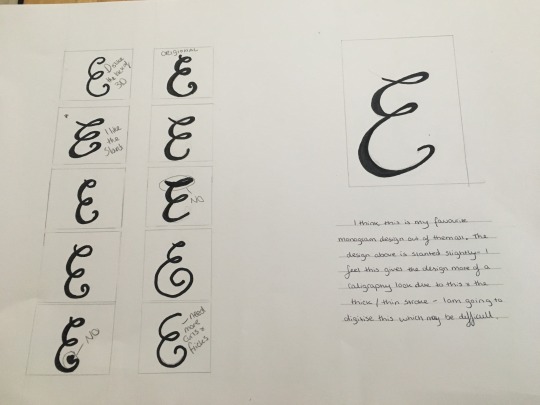 ORIGIONAL
E
Dislike
the lack of
3D
E
E
I like
the
Slant
E
E
E
NO
E
E
E
NO
E
need
more
curls &
tricks
E
E
I think this is my favourite
monogram design out of them all. The
design above is slanted slightly - I
feel this gives the design more of a
caligraphy look due to this & the
thick / thin stroke - I am going to
digitise this which may be difficult.